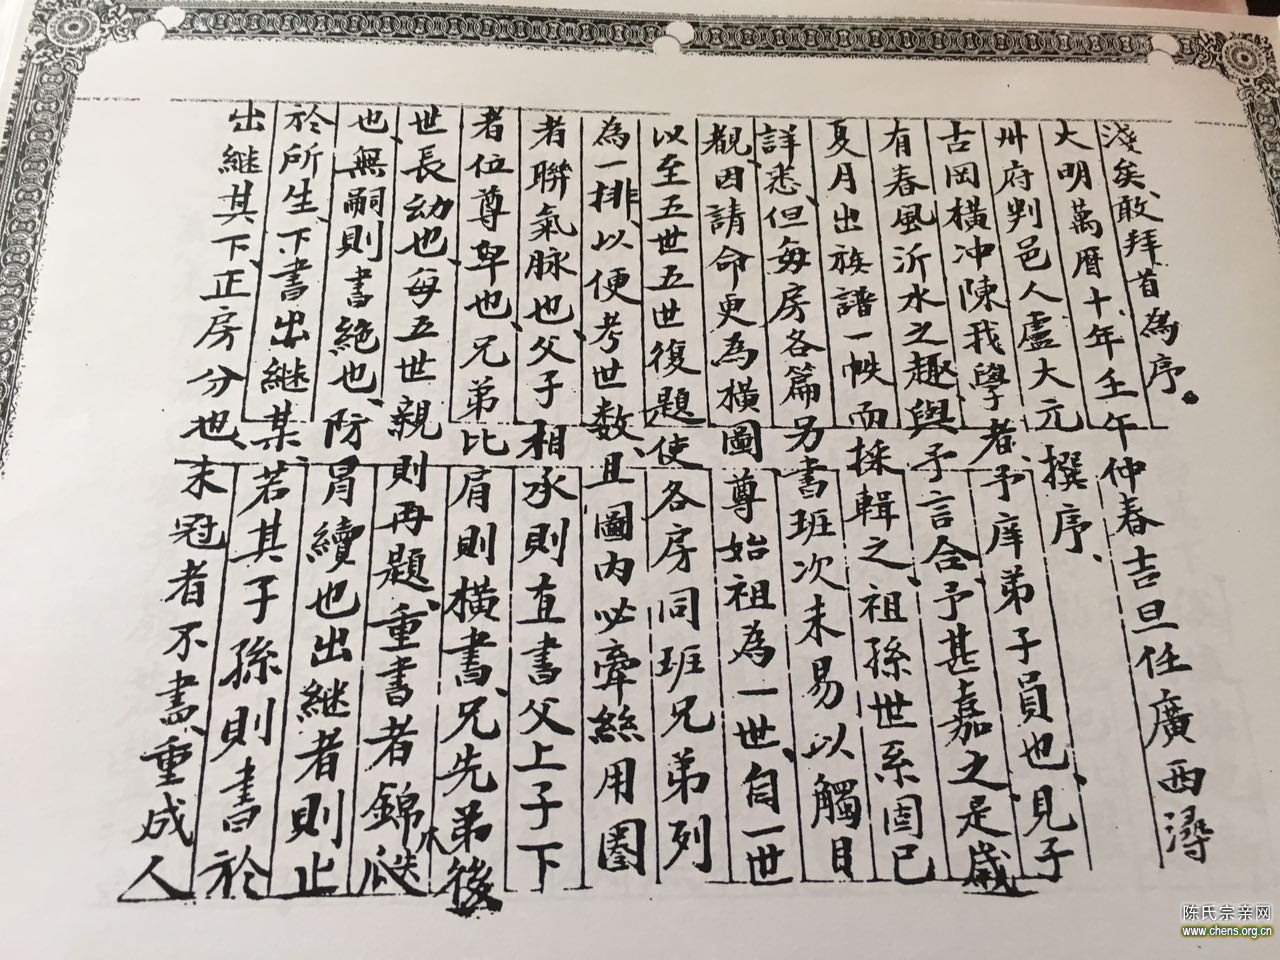 淺矣、敢拜首為序。
大明萬曆十年壬午仲春吉旦任廣西潯
州府判邑人盧大元撰序、
古岡橫冲陳我學者、予庠弟子員也、見子
有春風沂水之趣、與予言合、予甚嘉之、是歲
夏月出族譜一帙而採輯之、祖孫世系固已
詳悉、但每房各篇另書班次未易以觸目
觀、因請命更為橫圖尊始祖為一世、自一世
以至五世五世復題使各房同班兄弟列
為一排、以便考世数、且圖内必牽絲用圈
者聯氣脉也、父子相承則直書父上子下
者位尊卑也、兄弟比肩則橫書、兄先弟後
世長幼也、每五世親則再題、重書者錦
也、無嗣則書絶也、防冐續也出継者則止
於所生、下書出継某、若其子孫則書於
出継其下、正房分也、未冠者不書、重成人
陈氏宗亲网
www.chens.org.cn